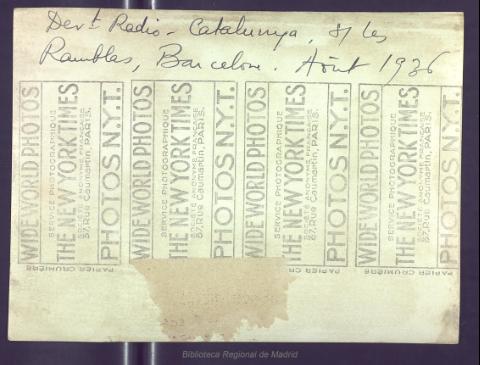 Devt Radio - Catalunya, sr les
Ramblas, Barcelone. Août 1936
WIDE WORLD PHOTOS
SERVICE PHOTOGRAPHIQUE
THE NEW YORK TIMES
SOCIÉTÉ ANONYME FRANÇAISE
37, Rue Caumartin, PARIS.
PHOTOS N.Y.T.
WIDE WORLD PHOTOS
SERVICE PHOTOGRAPHIQUE
THE NEW YORK TIMES
SOCIÉTÉ ANONYME FRANÇAISE
37, Rue Caumartin, PARIS.
PHOTOS N.Y.T.
WIDE WORLD PHOTOS
SERVICE PHOTOGRAPHIQUE
THE NEW YORK TIMES
SOCIÉTÉ ANONYME FRANÇAISE
37, Rue Caumartin, PARIS.
PHOTOS N.Y.T.
WIDE WORLD PHOTOS
SERVICE PHOTOGRAPHIQUE
THE NEW YORK TIMES
SOCIÉTÉ ANONYME FRANÇAISE
37, Rue Caumartin, PARIS.
PHOTOS N.Y.T.
PAPIER CRUMIÈRE
PAPIER CR
PAPIER CRUMIÈRE
Biblioteca Regional de Madrid